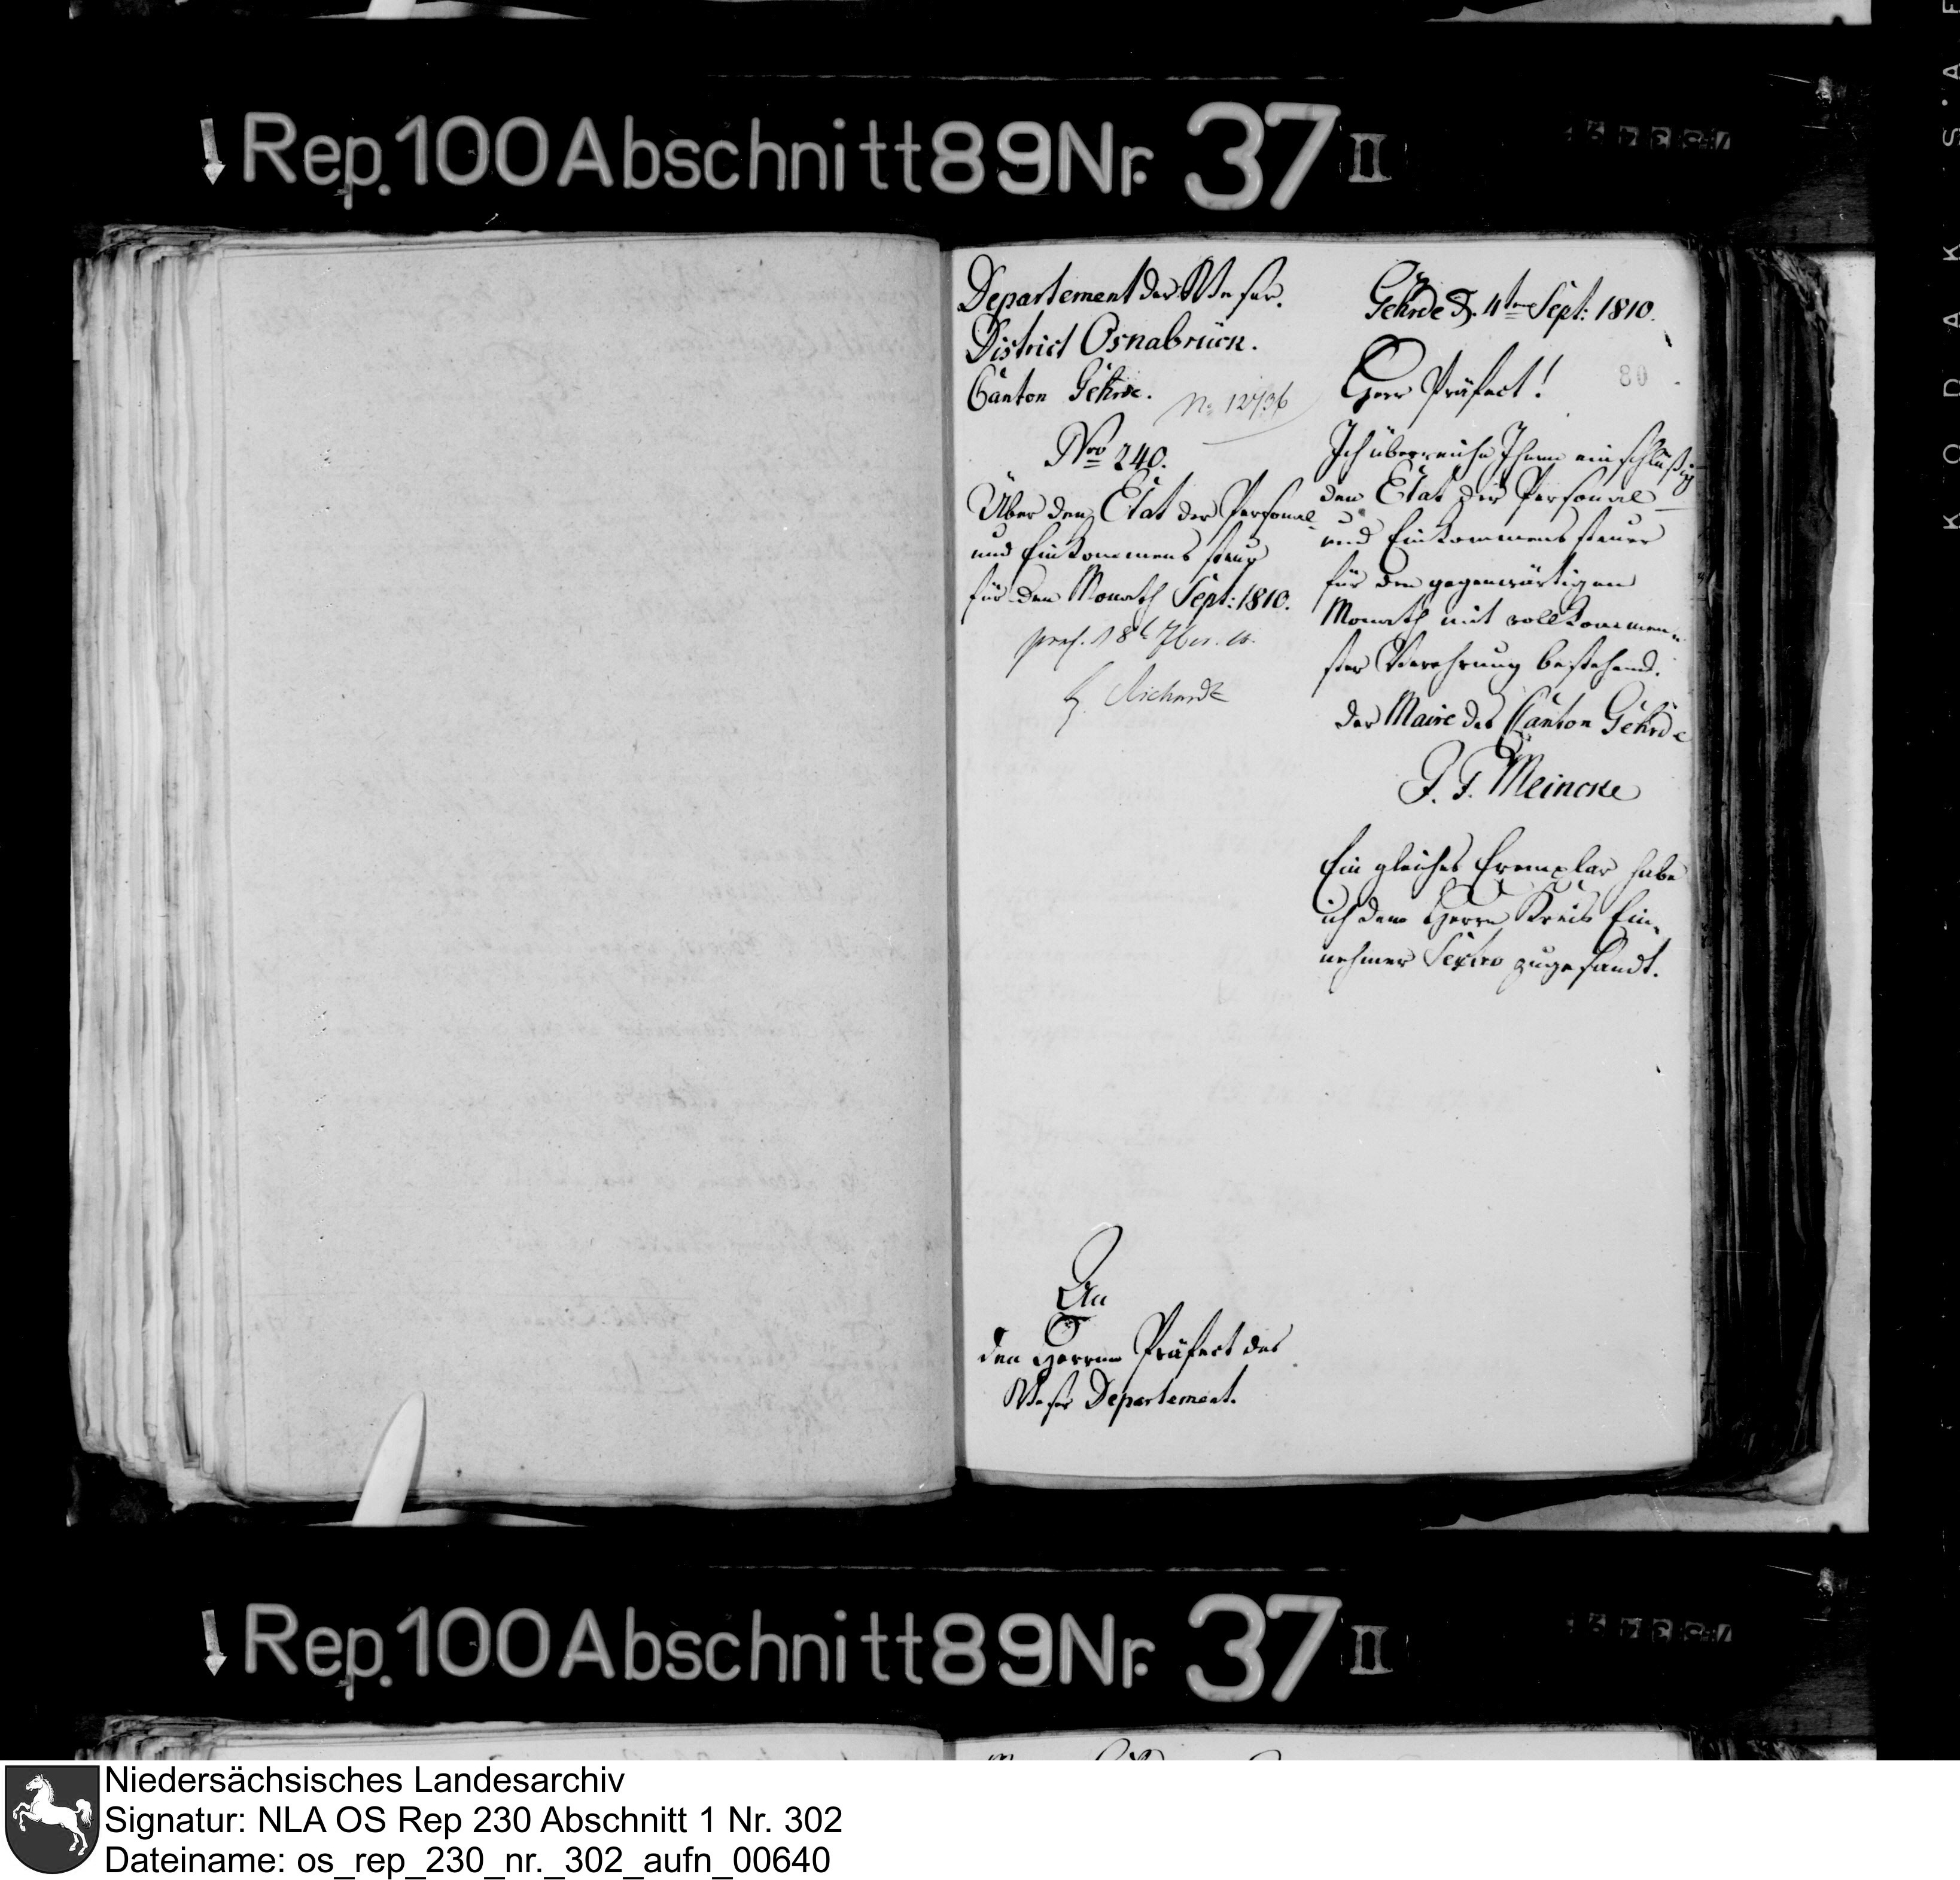 Rep. 100 Abschnitt 89 Nr. 37 II
Departement der Weser.
District Osnabrück.
Canton Gehrde.
No 12736
Nro 240.
Über den Etat der Personal-
und Einkommens steuer
für den Monath Sept: 1810.
pres. 18t 7br. 10.
Richard
Gehrde d. 4ten Sept: 1810.
80
Herr Präfect!
Ich überreiche Ihnen einschläßig
den Etat der Personal-
und Einkommens steuer
für den gegenwärtigen
Monath mit vollkommen-
ster Verehrung bestehend.
der Maire des Canton Gehrde
J. F. Meincke
Ein gleiches Exemplar habe
ich dem Herrn Kreis Ein-
nehmer Sextro zugesandt.
An
den Herren Präfect des
Weser Departement.
Rep. 100 Abschnitt 89 Nr. 37 II
KODAK S·A
Niedersächsisches Landesarchiv
Signatur: NLA OS Rep 230 Abschnitt 1 Nr. 302
Dateiname: os_rep_230_nr._302_aufn_00640